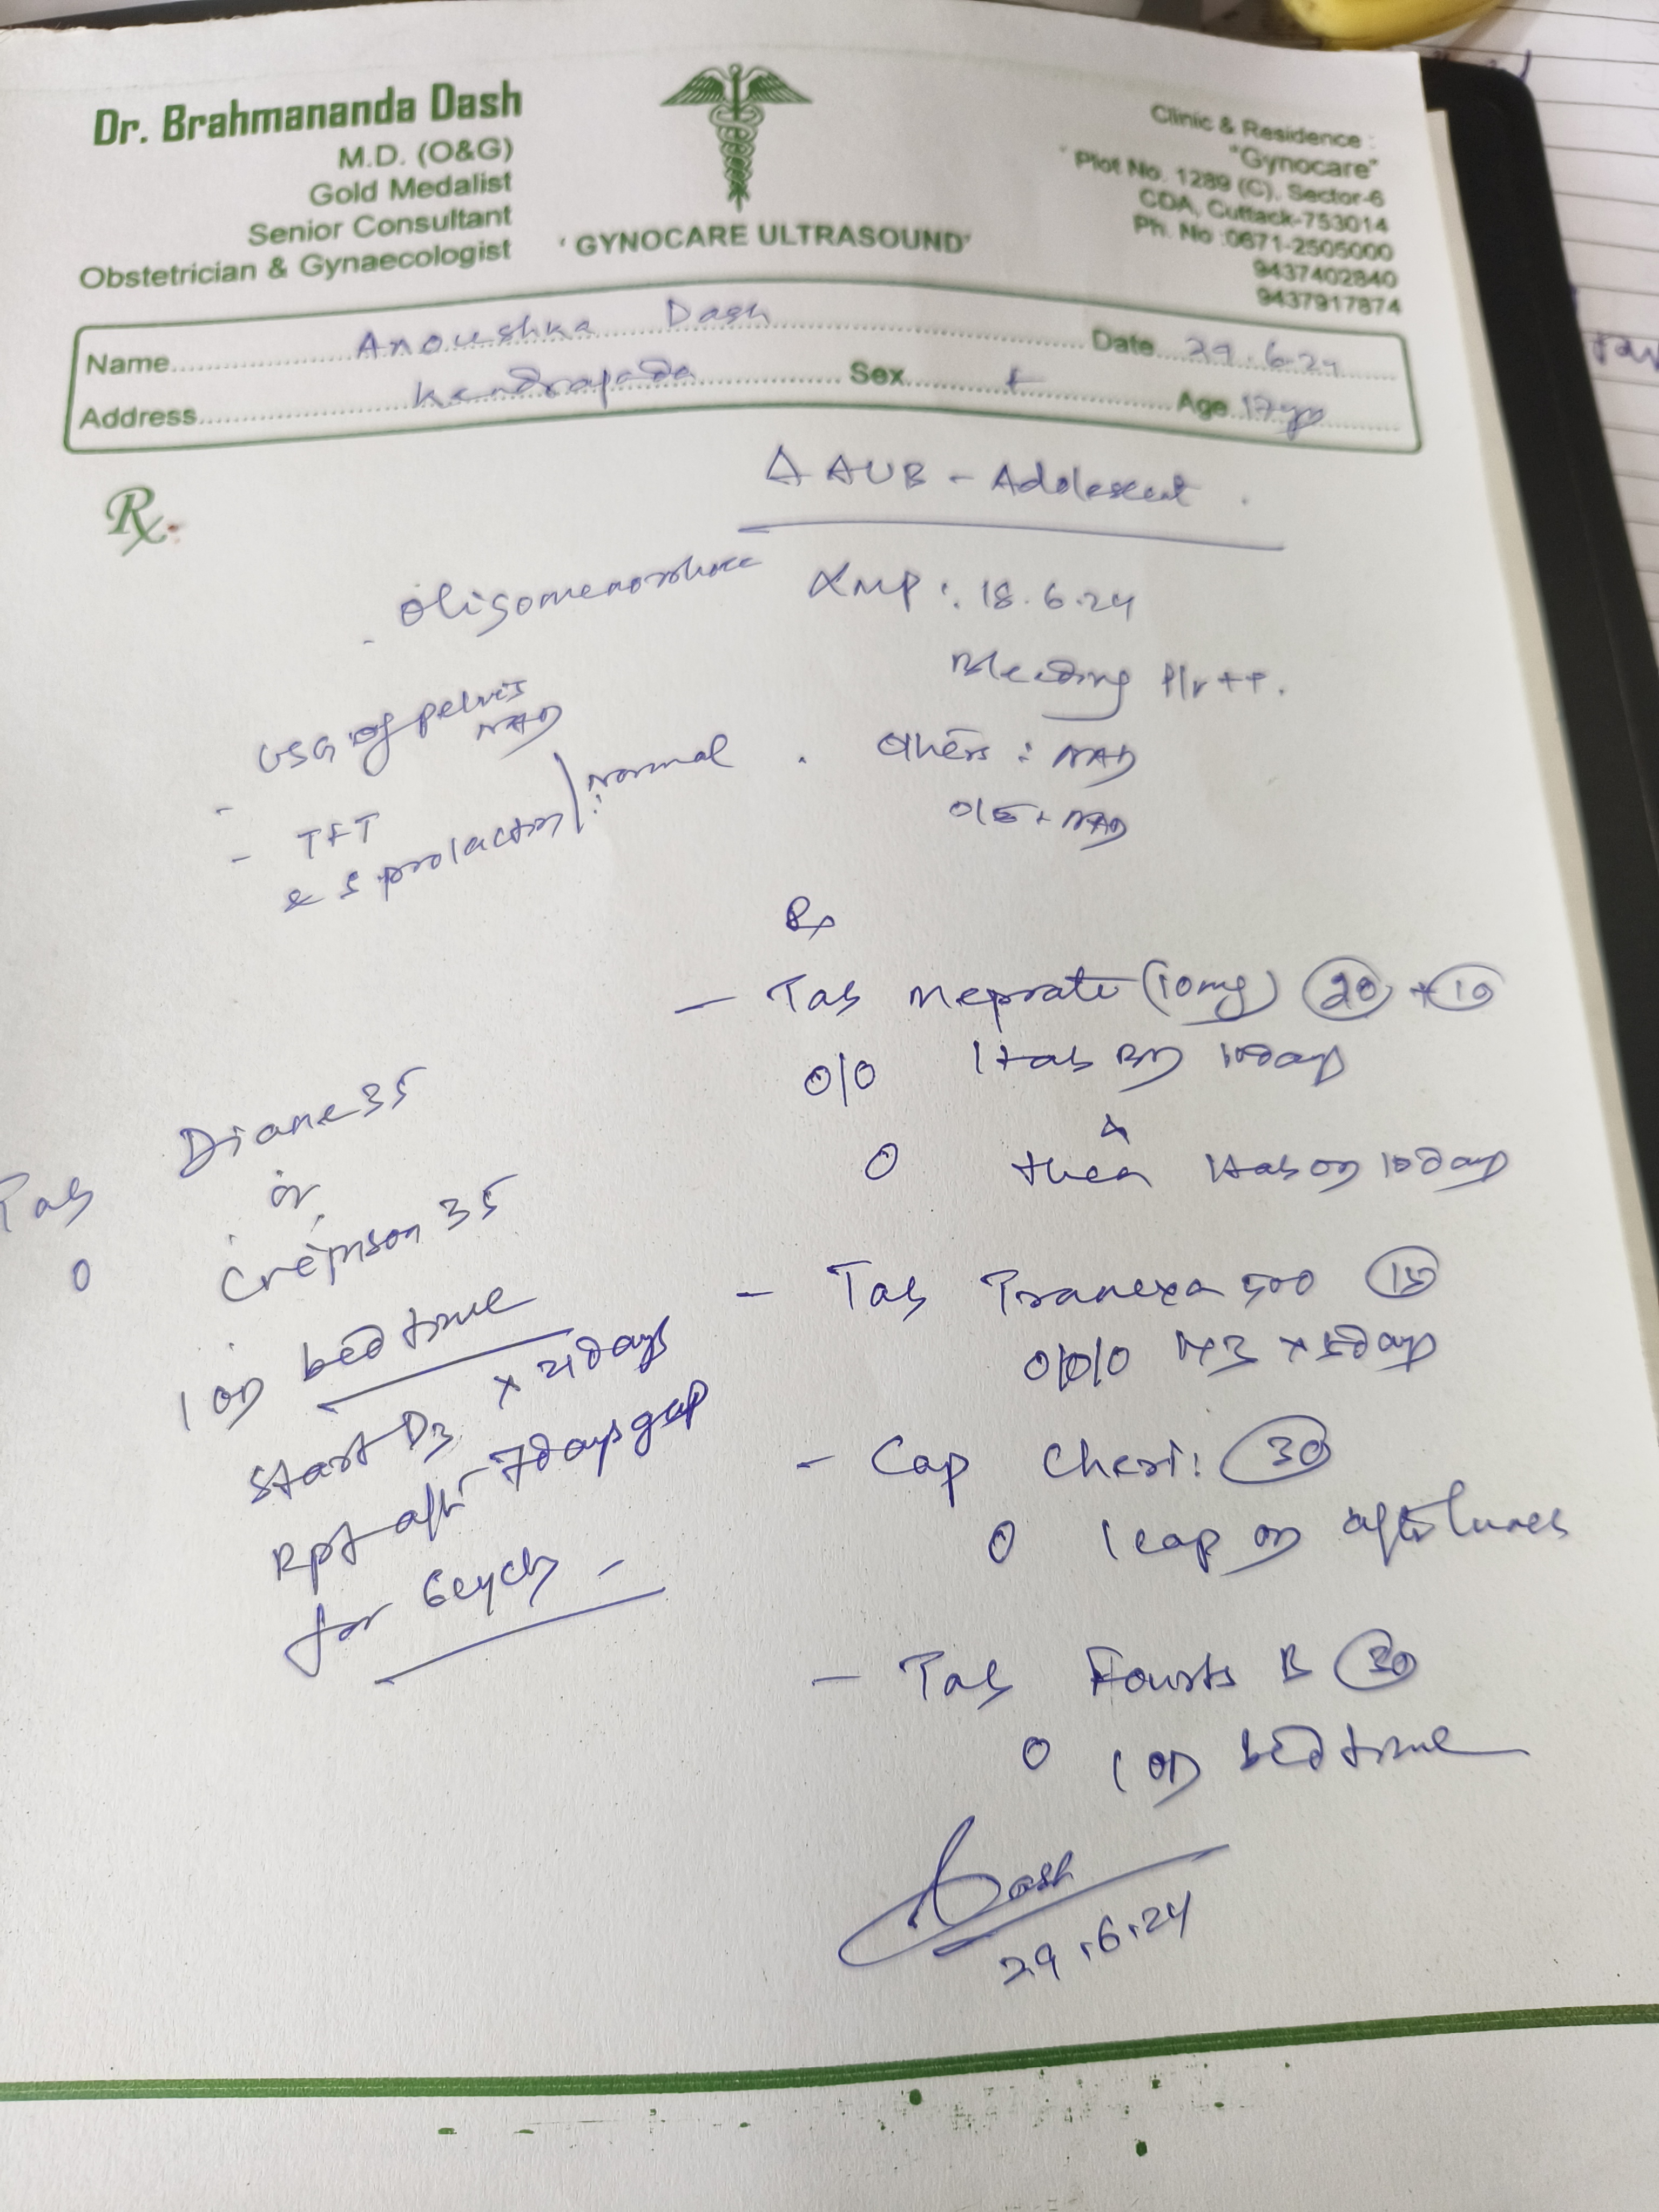 Dr. Brahmananda Dash
M.D. (O&G)
Gold Medalist
Senior Consultant
Obstetrician & Gynaecologist
'GYNOCARE ULTRASOUND'
Clinic & Residence :
"Gynocare"
Plot No. 1289 (C), Sector-6
CDA, Cuttack-753014
Ph. No :0671-2505000
9437402840
9437917874
Name Anoushka Dash Date 29.6.24
Address Kendrapada Sex F Age 17yr
Rx
Δ AUB - Adolescent
- Oligomenorrhoea
LMP : 18.6.24
Bleeding P/v ++.
- USG of pelvis
NAD
- TFT
& S prolactin : normal
Others : NAD
O/E - NAD
Rx
- Tab Meprate (10mg) 20 + 10
0/0 1tab BD 10days
then 1tab OD 10days
0
- Tab Tranexa 500 15
0/0/0 x 5days
- Cap 30
0 1cap OD after lunch
- Tab B 30
0 1 OD bedtime
Dash
29.6.24
Tab Diane 35
or
0 35
1 OD bedtime
x 21days
Start D3
Rpt after 7days gap
for 6cycles